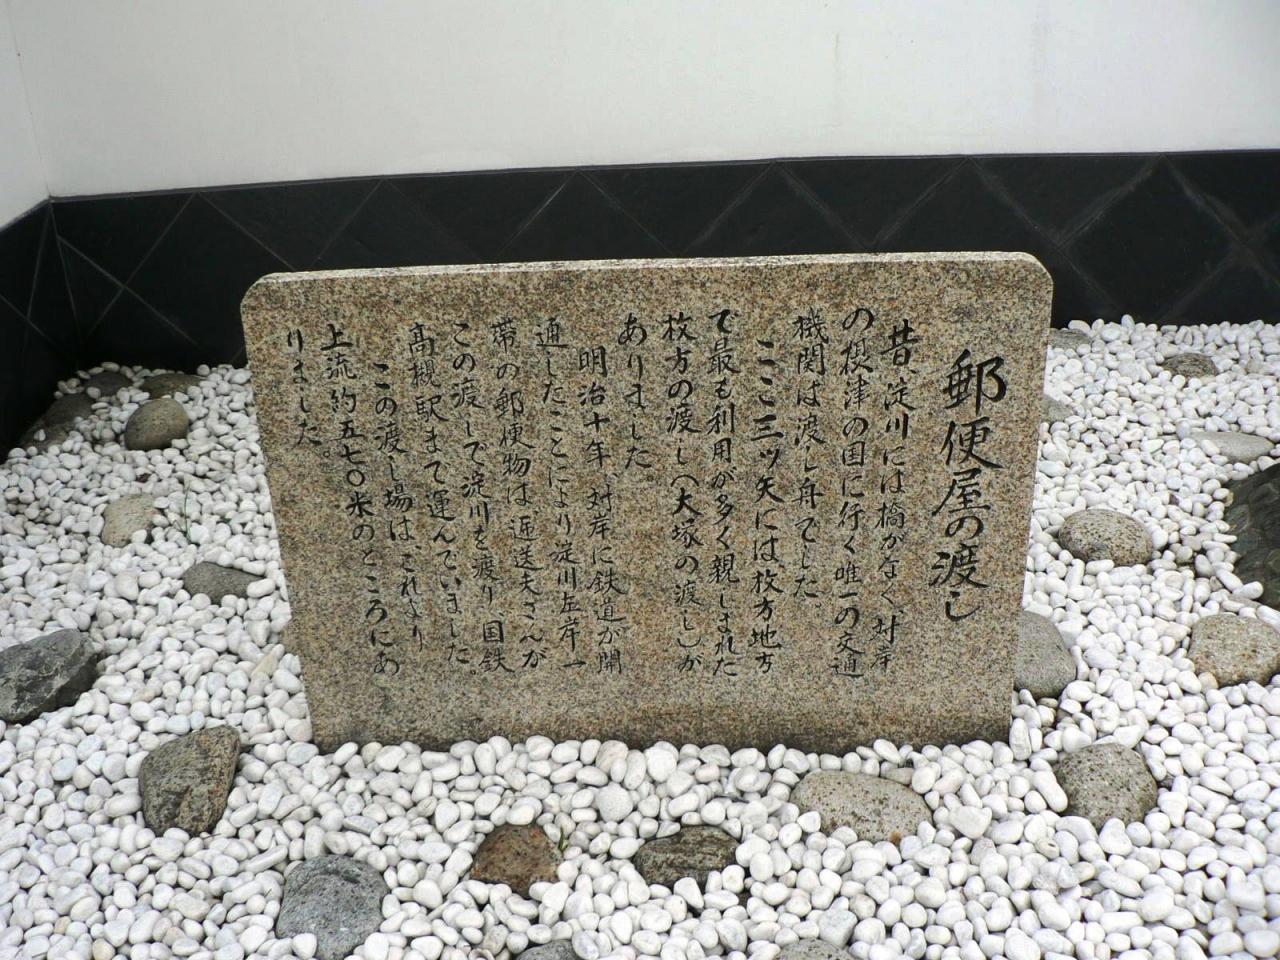 郵便屋の渡し
昔、淀川には橋がなく、対岸
の摂津の国に行く唯一の交通
機関は渡し舟でした。
ここ三ツ矢には枚方地方
で最も利用が多く親しまれた
枚方の渡し(大塚の渡し)が
ありました
明治十年、対岸に鉄道が開
通したことにより淀川左岸一
帯の郵便物は逓送夫さんが
この渡しで淀川を渡り、国鉄
高槻駅まで運んでいました。
この渡し場は、これより
上流約五七〇米のところにあ
りました。